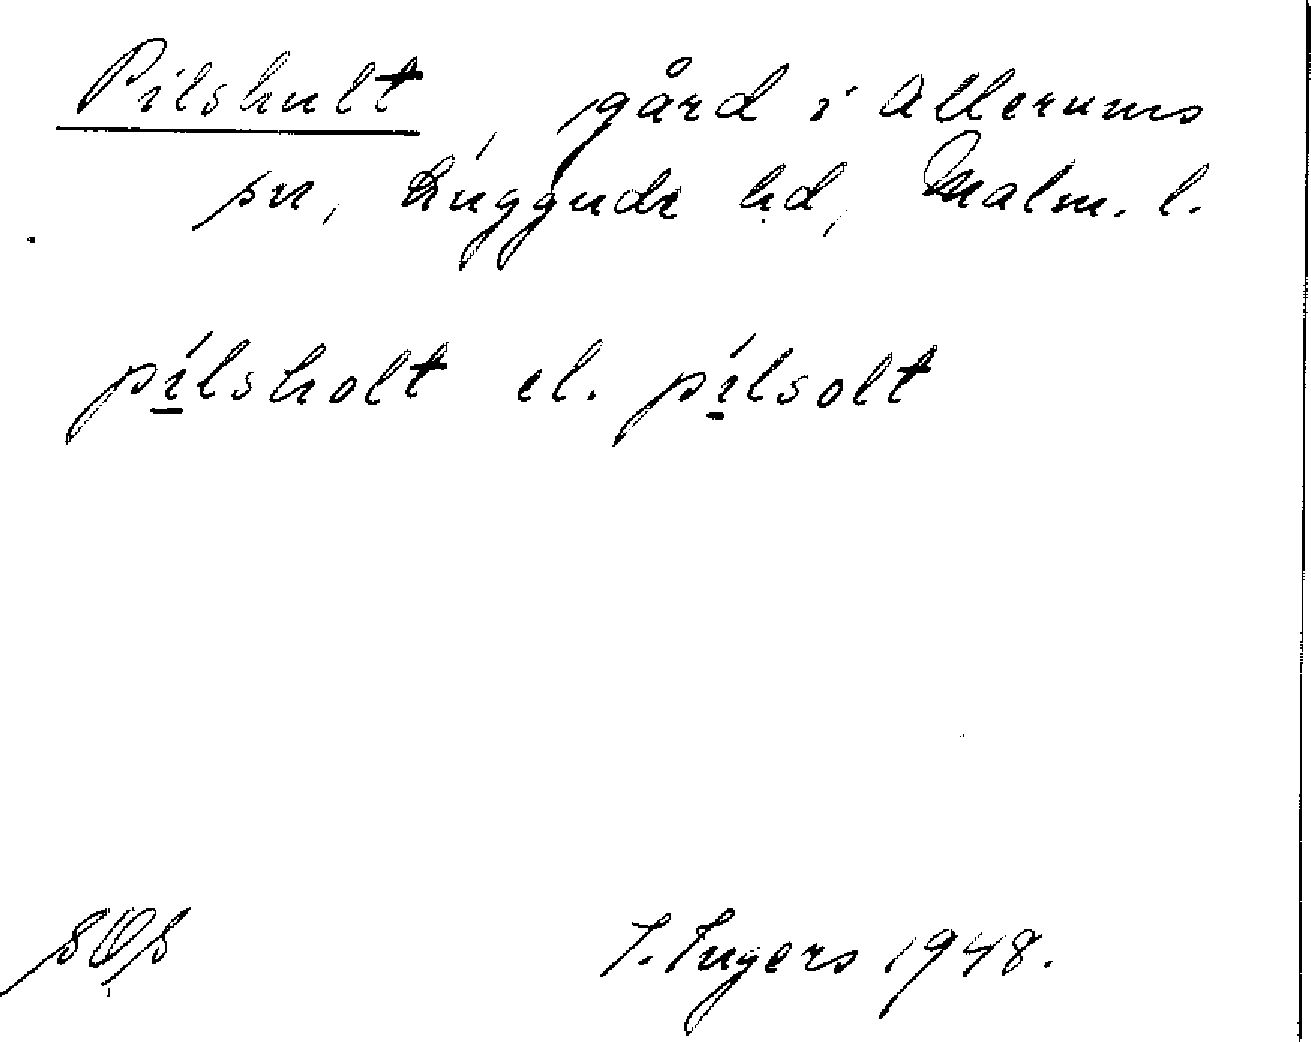 Pilshult, gård i Allerums
sn, Luggude hd, Malm. l.
pílsholt el. pílsolt
I. Ingers 1948.